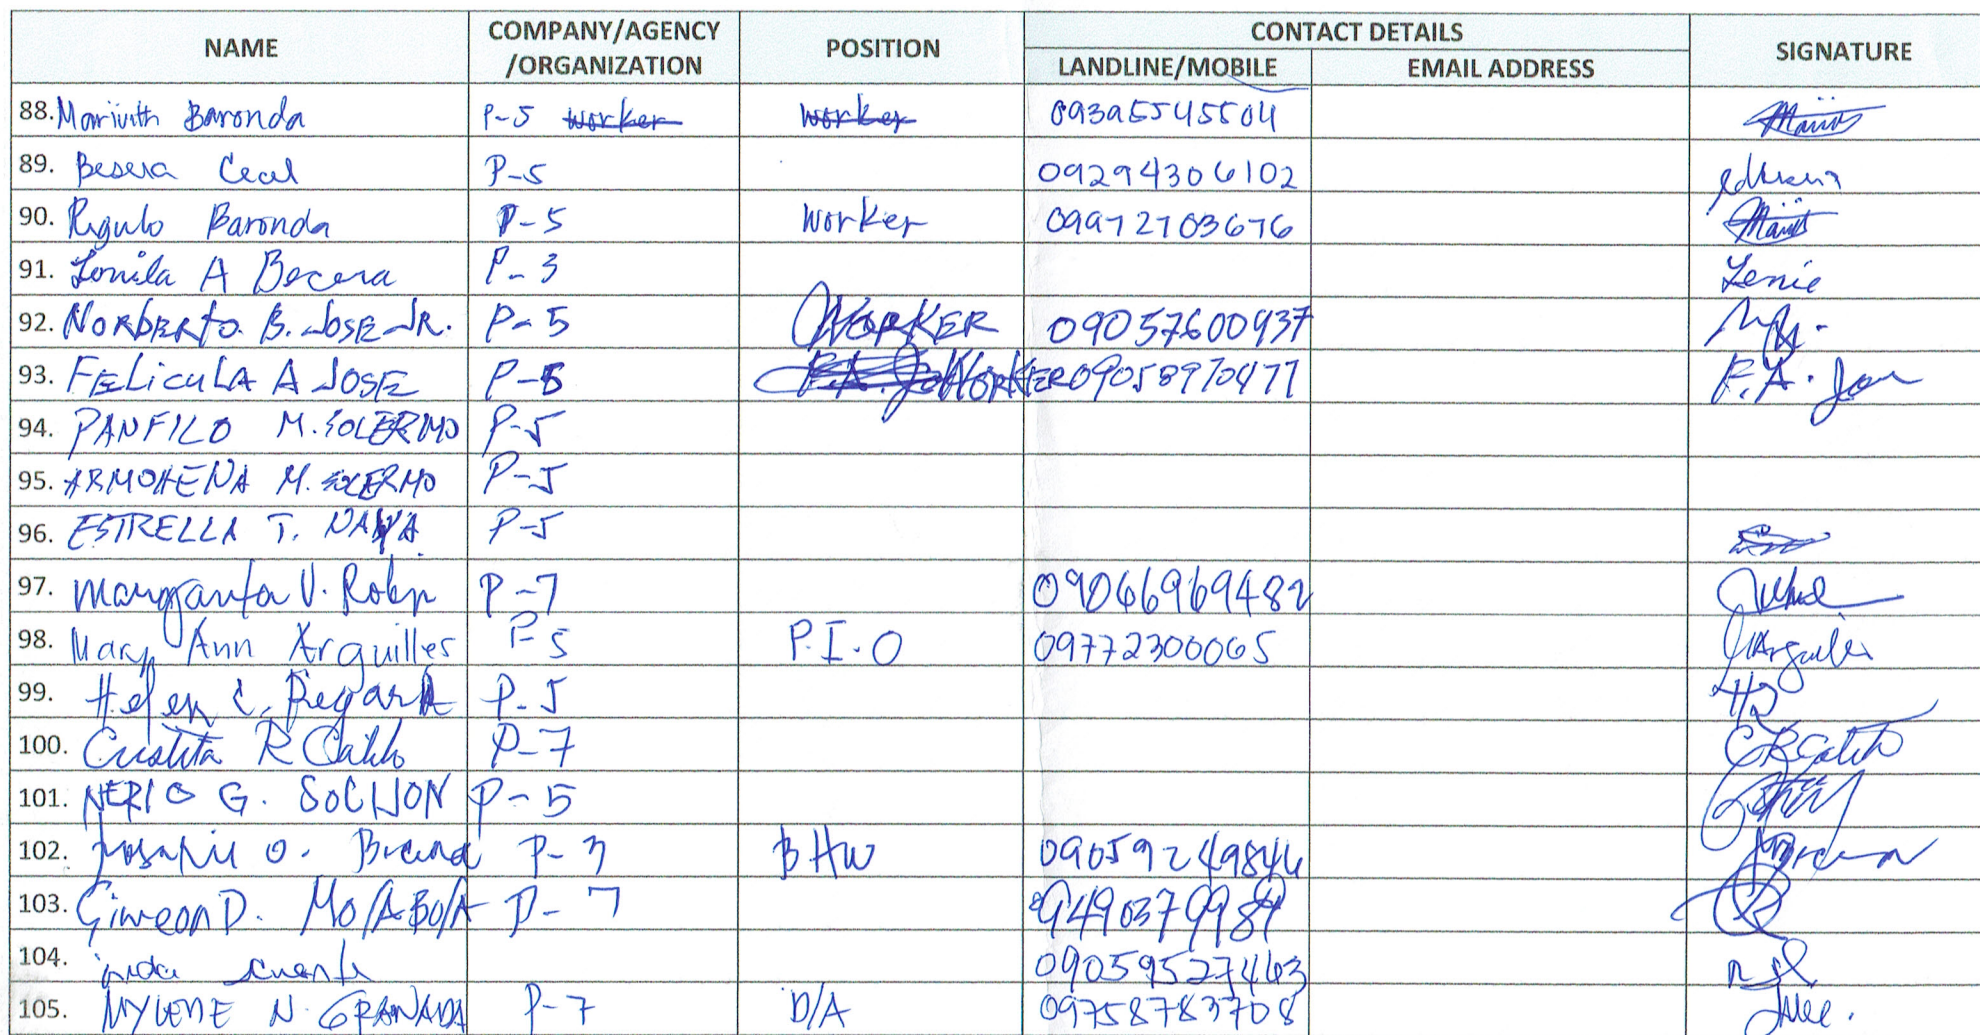 NAME COMPANY/AGENCY /ORGANIZATION POSITION CONTACT DETAILS SIGNATURE
LANDLINE/MOBILE EMAIL ADDRESS
88. Marivith Baronda P-5 worker worker 09395545504
89. Besera Cecel P-5 09294306102
90. Regulo Baronda P-5 Worker 09972703676
91. Lonila A Becera P-3 Lenie
92. NORBERTO B. JOSE JR. P-5 WORKER 09057600937
93. FELICULA A JOSE P-5 WORKER 09058970477 F.A. Jose
94. PANFILO M. SOLERMO P-5
95. ARMOHENA M. SOLERMO P-5
96. ESTRELLA T. NAVA P-5
97. Margarita V. Robin P-7 09066969482
98. Mary Ann Arguilles P-5 P.I.O 09772300065 Arguilles
99. Helen C. P-5
100. Cristita R P-7
101. NERIO G. SOCIJON P-5
102. O. P-3 BHW 09059249846
103. D. MOLABOLA P-7 09490379984
104. 09059527463
105. MYLENE N. GRANADA P-7 D/A 09758783708